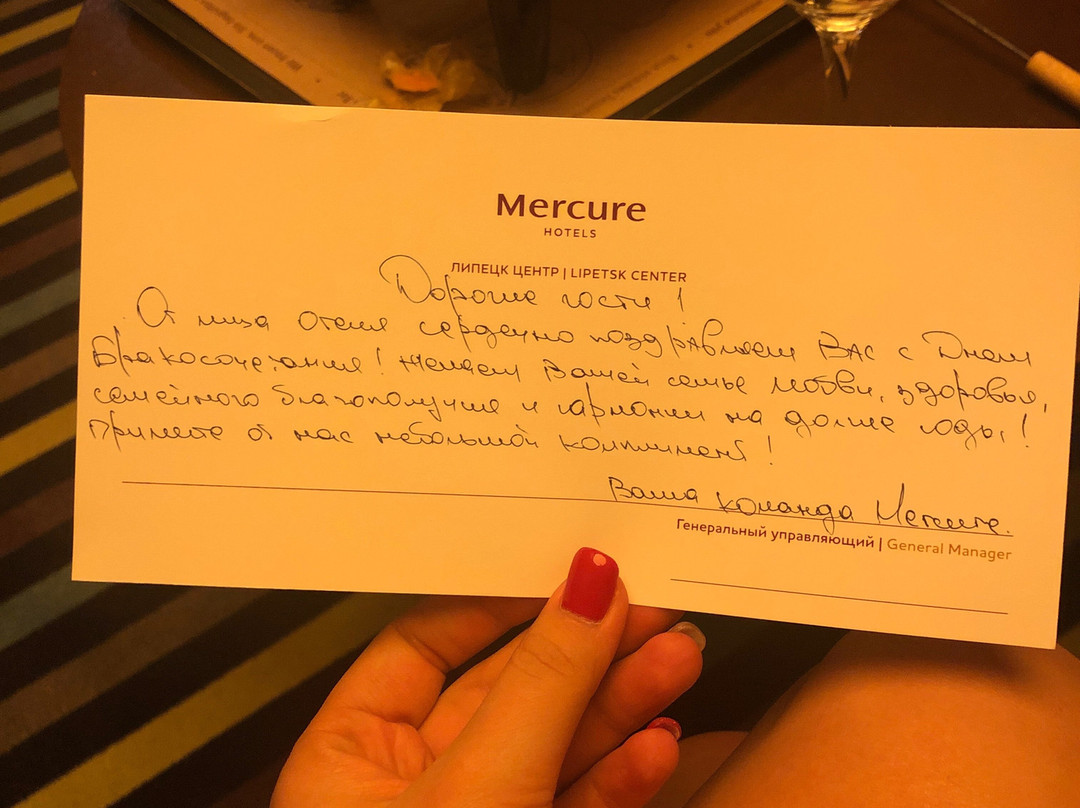 Mercure
HOTELS
ЛИПЕЦК ЦЕНТР | LIPETSK CENTER
Дорогие гости!
От лица отеля сердечно поздравляем ВАС с Днем
Бракосочетания! Желаем Вашей семье любви, здоровья,
семейного благополучия и гармонии на долгие годы!
Примите от нас небольшой комплимент!
Ваша команда Mercure.
Генеральный управляющий | General Manager